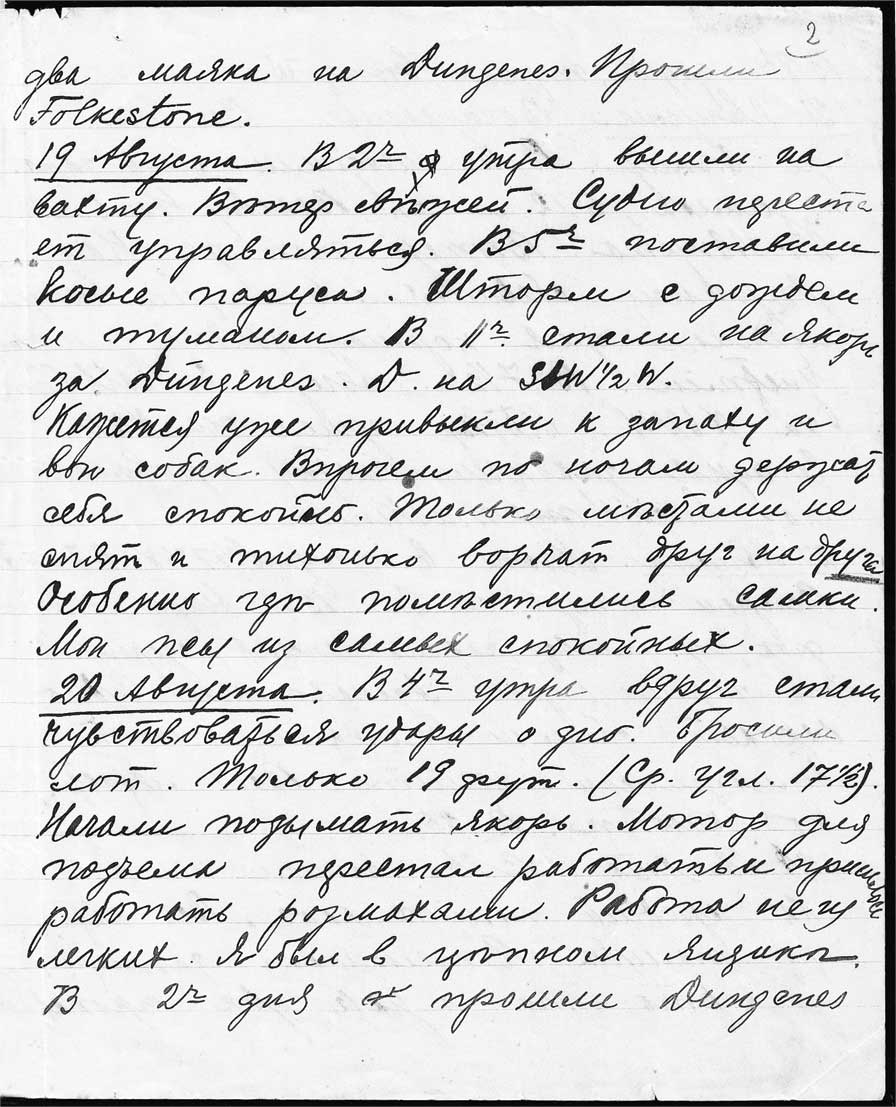 2
два маяка на Dungenes. Прошли
Folkestone.
19 Августа. В 2ч утра вышли на
вахту. Вѣтер свѣжей. Судно переста
ет управляться. В 5ч поставили
косые паруса. Шторм с дождем
и туманом. В 11ч. стали на якорь
за Dungenes. D. на SW 1/2 W.
Кажется уже привыкли к запаху и
вою собак. Впрочем по ночам держат
себя спокойно. Только мѣстами не
спят и тихонько ворчат друг на друга
Особенно гдѣ помѣстились самки.
Мои псы из самых спокойных.
20 Августа. В 4ч утра вдруг стали
чувствоваться удары о дно. Бросили
лот. Только 19 фут. (Ср. угл. 17 1/2).
Начали подымать якорь. Мотор для
подъема перестал работать и пришлось
работать розмахами. Работа не из
легких. Я был в цѣпном ящикѣ.
В 2ч дня прошли Dungenes